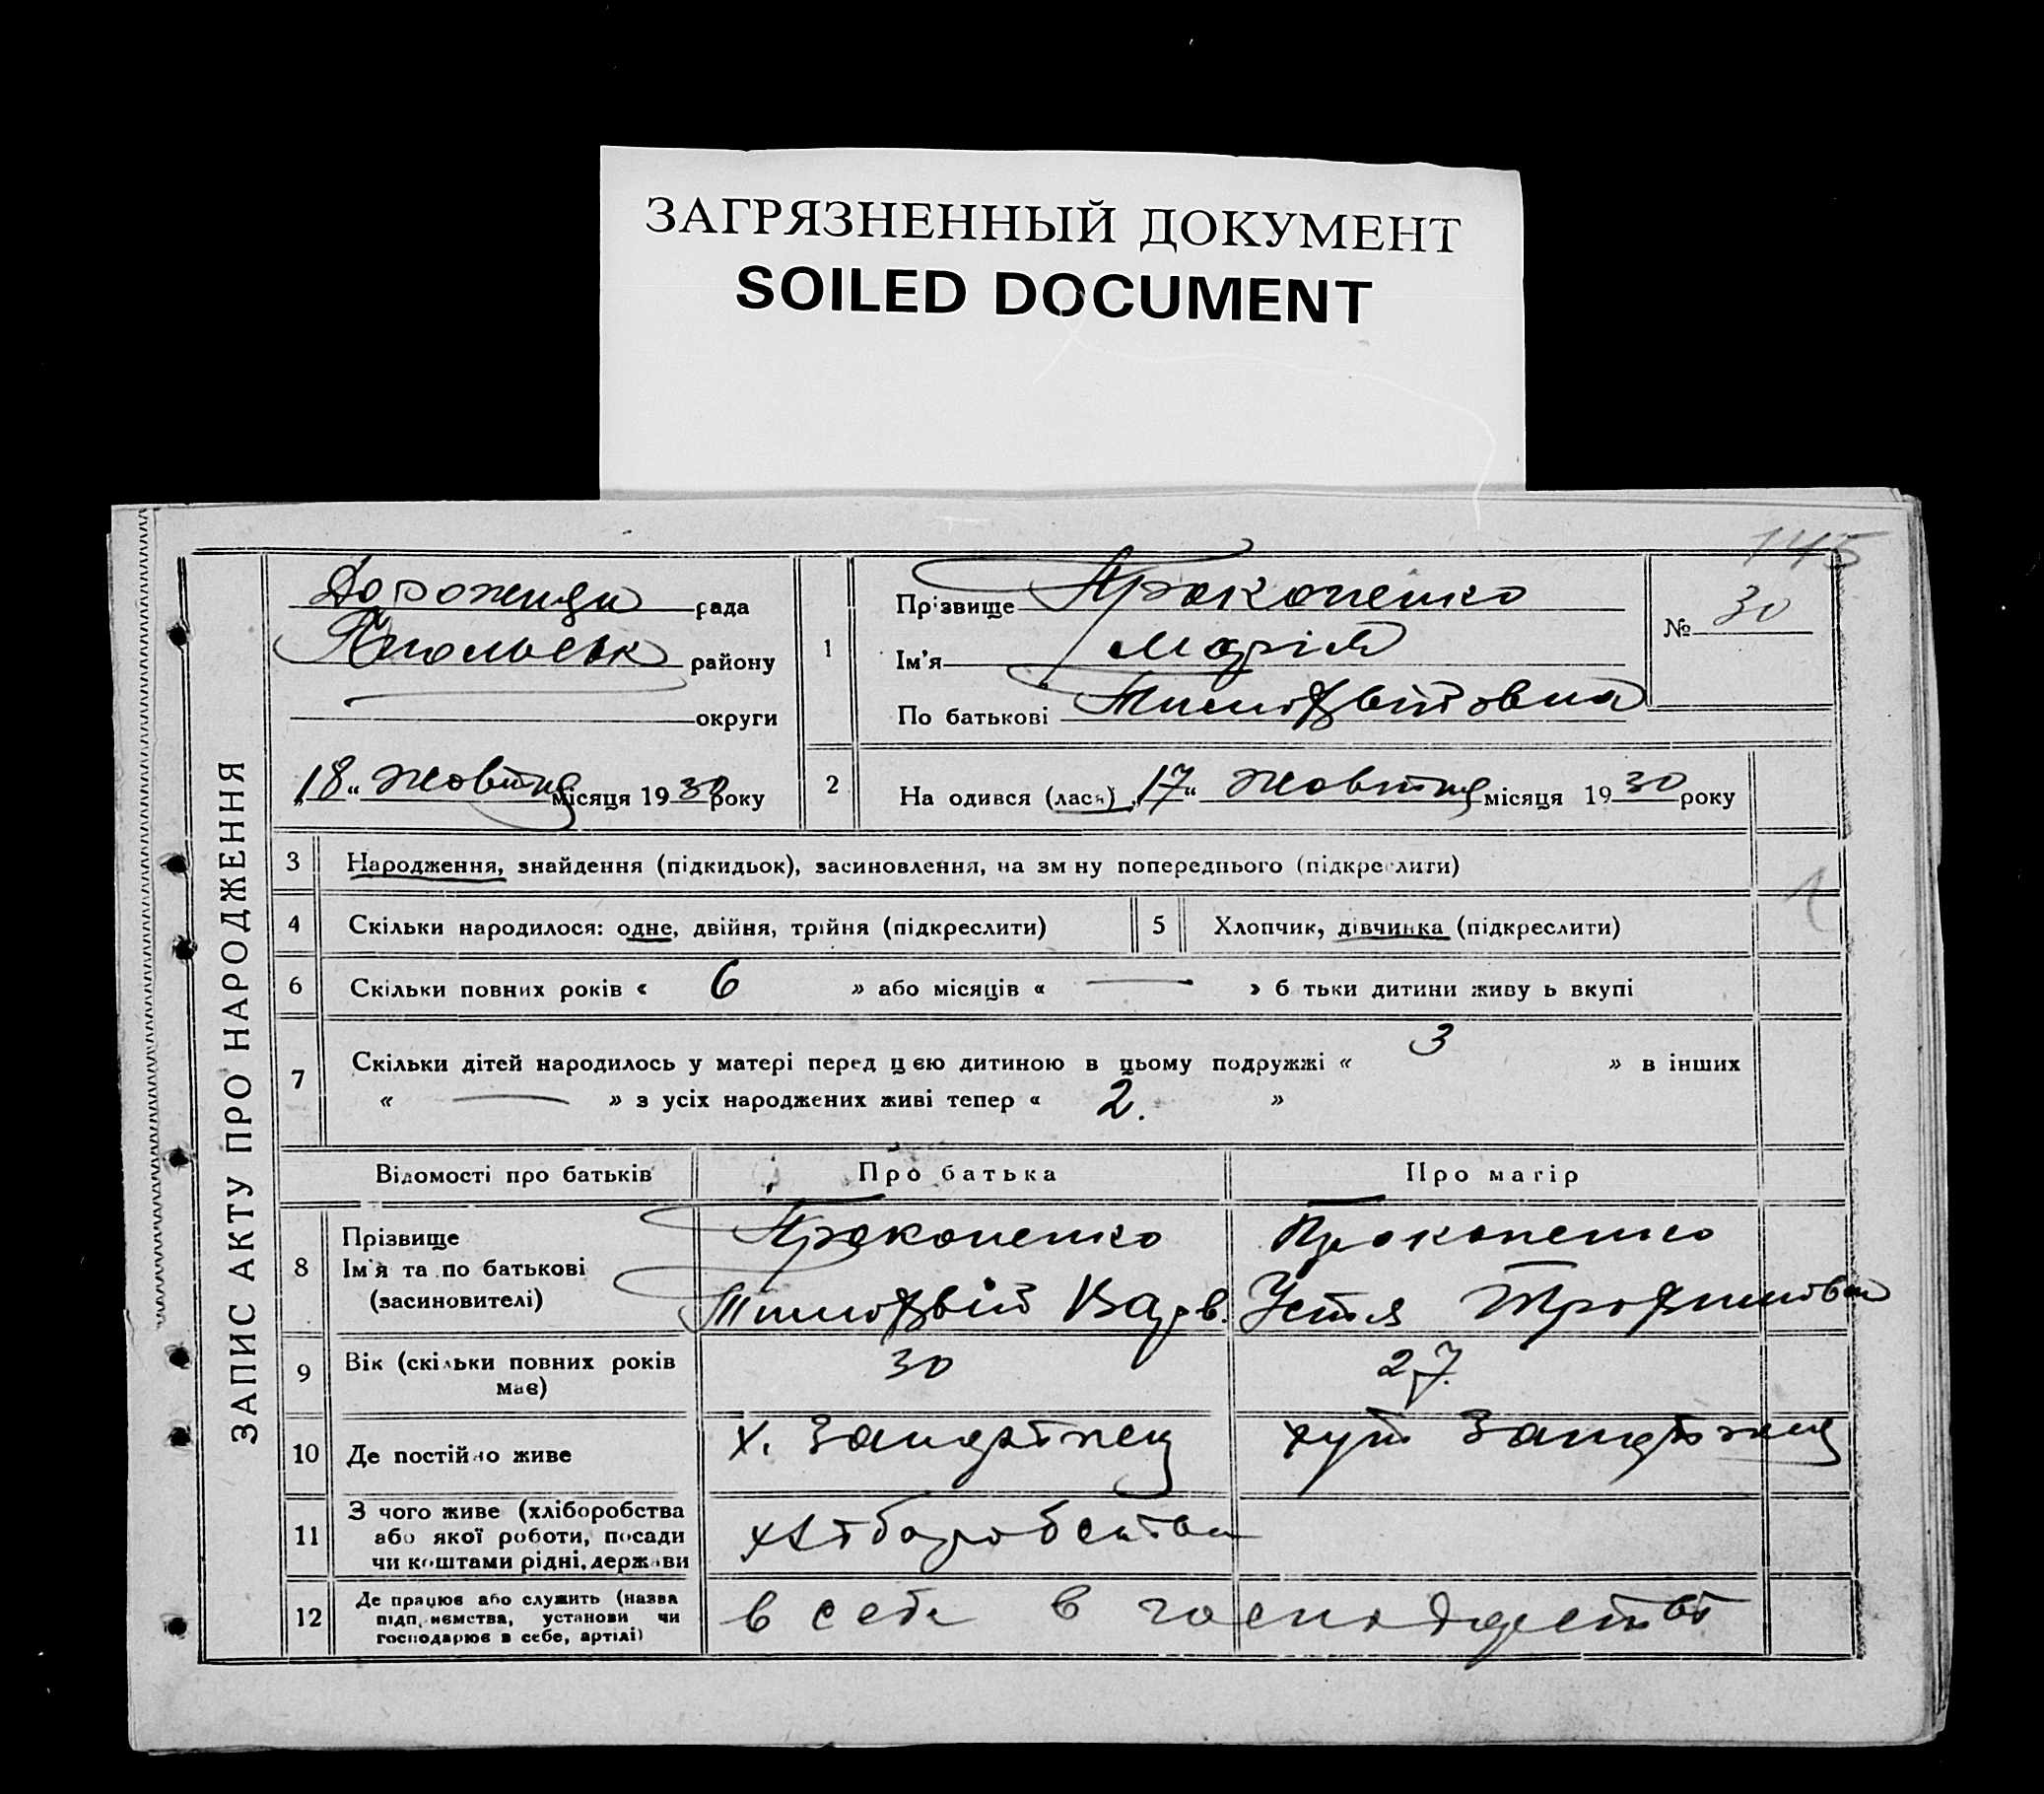 ЗАГРЯЗНЕННЫЙ ДОКУМЕНТ
SOILED DOCUMENT
145
ЗАПИС АКТУ ПРО НАРОДЖЕННЯ
рада
району
округи
„18“ жовтня місяця 1930 року
1
Прізвище Прокопенко
Ім'я Марія
По батькові Тимофвіївна
№ 30
2 На одився (лась) „17“ жовтня місяця 1930 року
3 Народження, знайдення (підкидьок), засиновлення, на зм ну попереднього (підкреслити)
1
4 Скільки народилося: одне, двійня, трійня (підкреслити) 5 Хлопчик, дівчинка (підкреслити)
6 Скільки повних років « 6 » або місяців « — » б тьки дитини живу ь вкупі
7 Скільки дітей народилось у матері перед цєю дитиною в цьому подружжі « 3 » в інших
« — » з усіх народжених живі тепер « 2. »
Відомості про батьків Про батька Про матір
8 Прізвище
Ім'я та по батькові
(засиновителі)
Прокопенко
Тимофвій
Прокопенко
Устя Трофимовна
9 Вік (скільки повних років
має)
30 27.
10 Де постійно живе х. хут
11 З чого живе (хліборобства
або якої роботи, посади
чи коштами рідні, держави
хліборобства
12 Де працює або служить (назва
підприємства, установи чи
господарює в себе, артілі)
в себе в господарстві